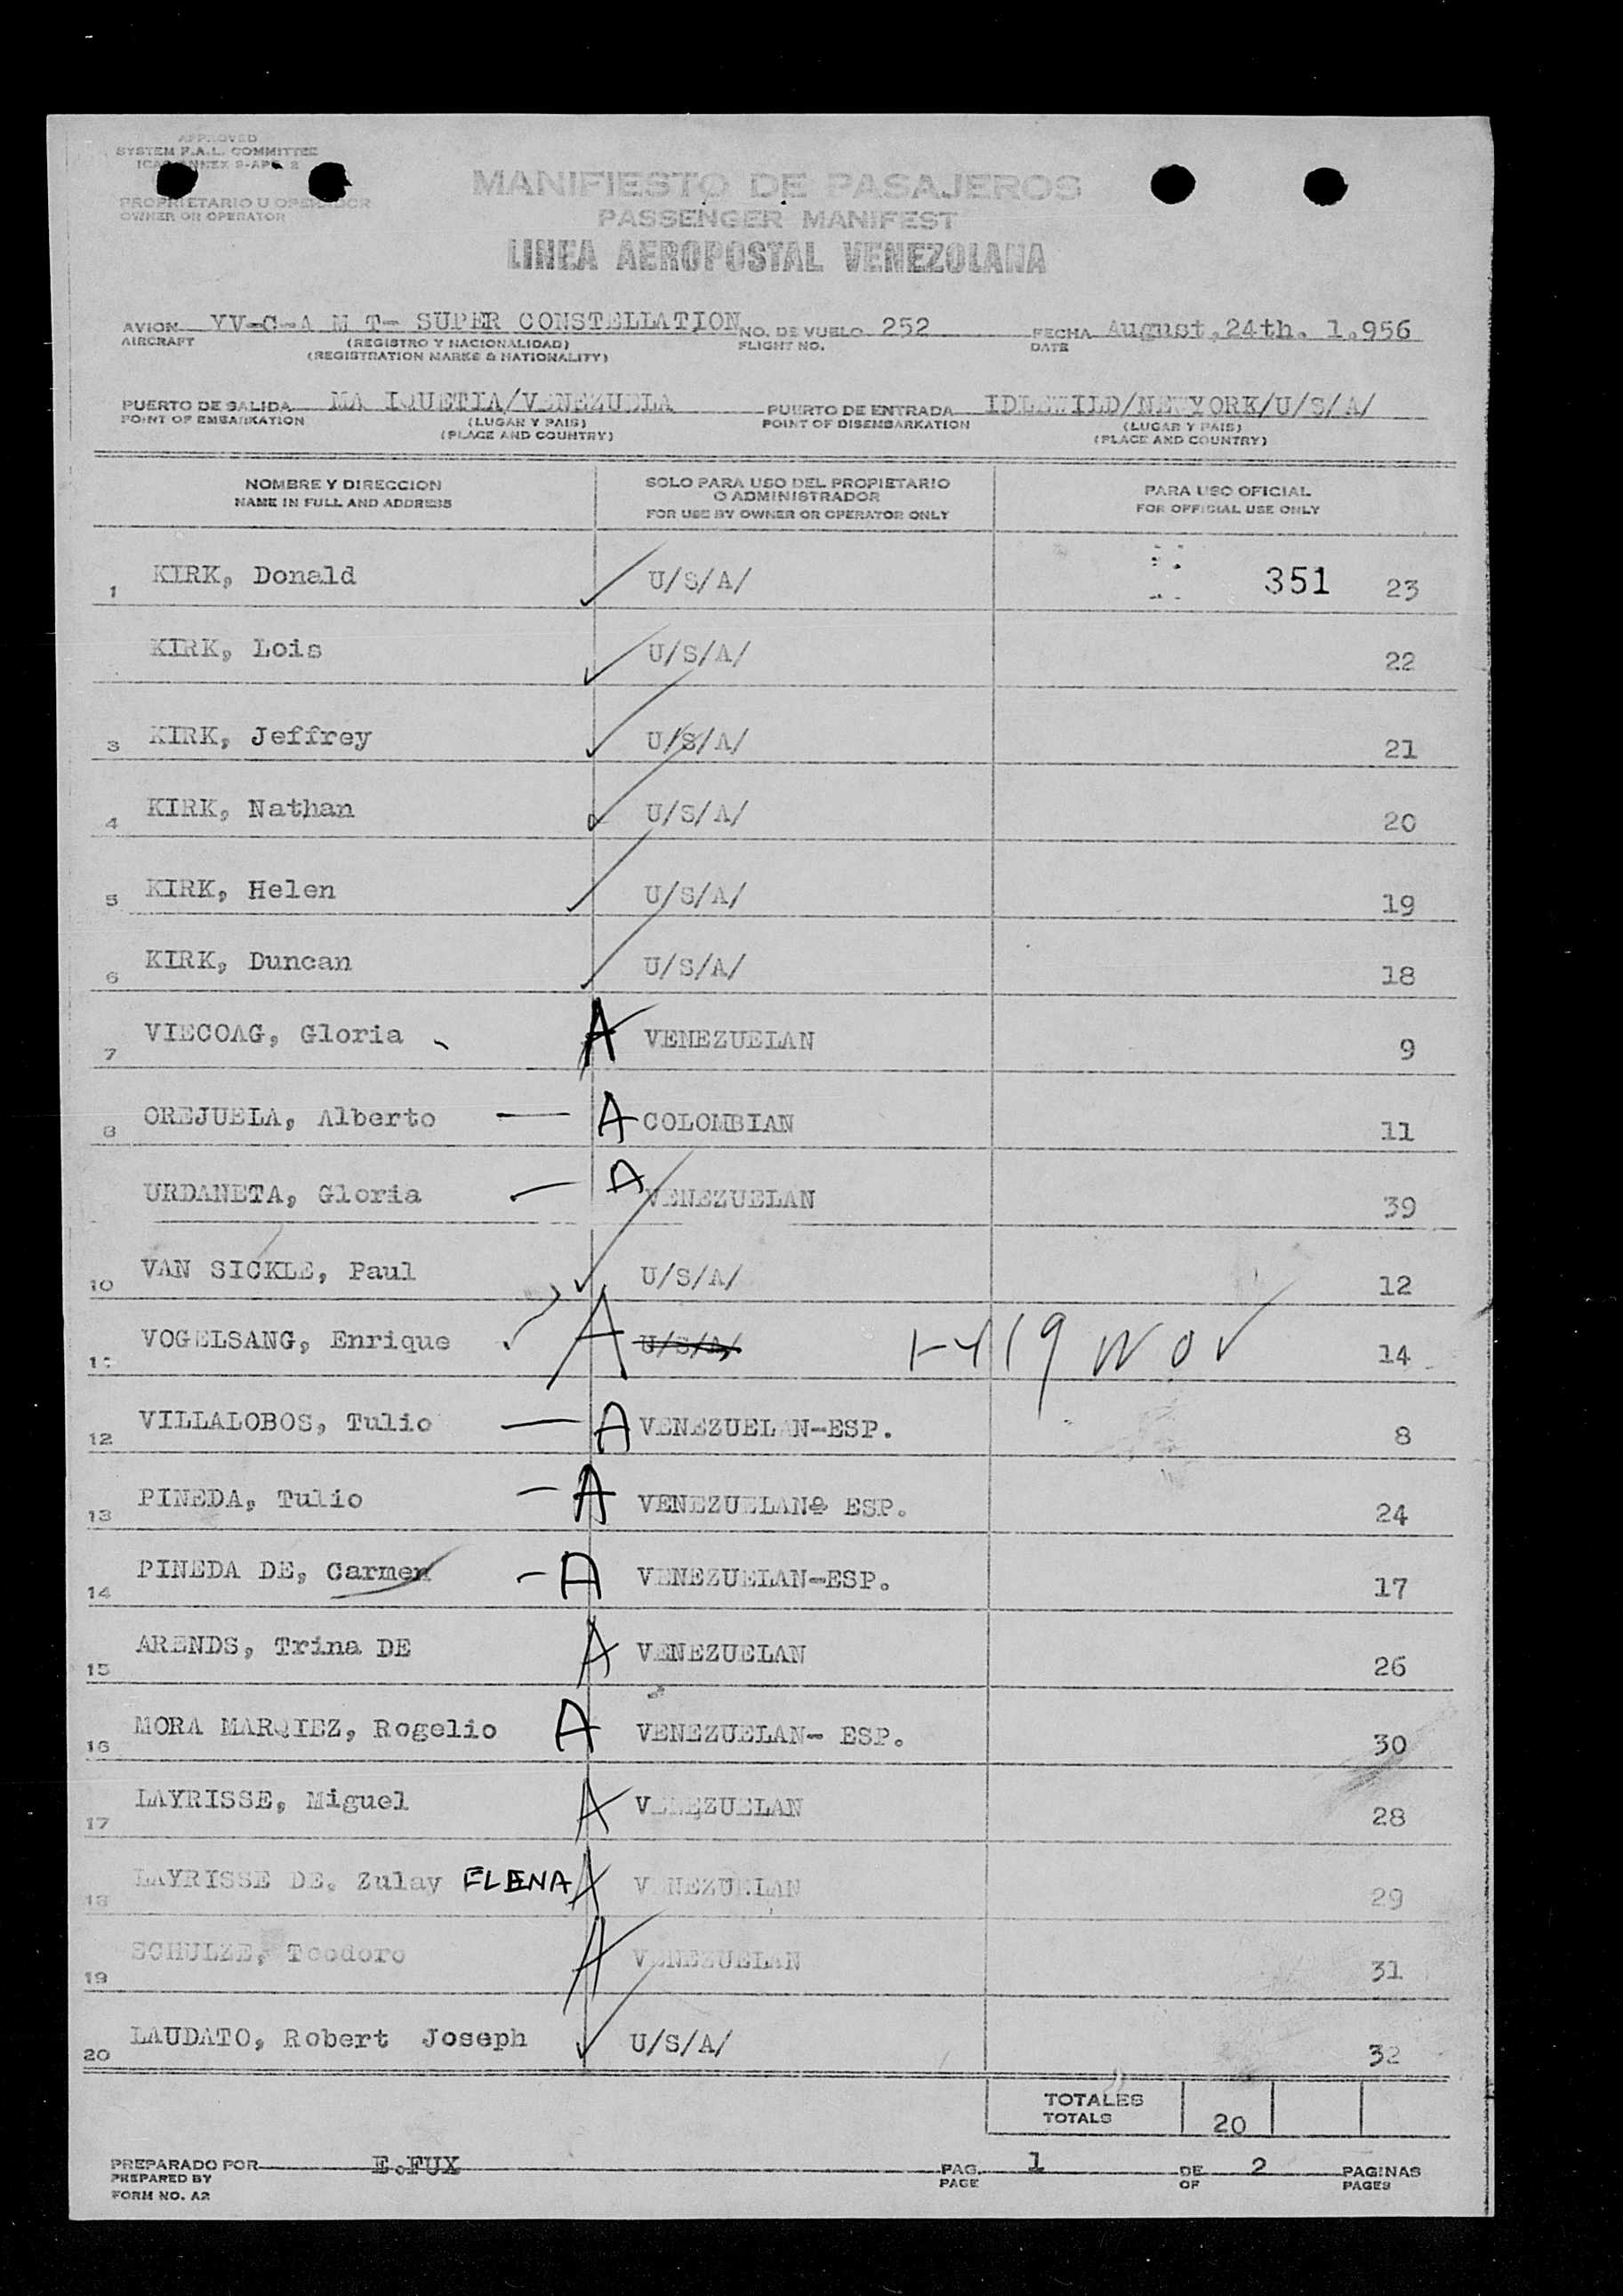 APPROVED
SYSTEM F.A.L. COMMITTEE
ICAO ANNEX 9-APP. 2
PROPRIETARIO U OPERADOR
OWNER OR OPERATOR
MANIFIESTO DE PASAJEROS
PASSENGER MANIFEST
LINEA AEROPOSTAL VENEZOLANA
AVION YV-C-A M T- SUPER CONSTELLATION NO. DE VUELO 252 FECHA August,24th. 1.956
AIRCRAFT (REGISTRO Y NACIONALIDAD) FLIGHT NO. DATE
(REGISTRATION MARKS & NATIONALITY)
PUERTO DE SALIDA MA IQUETIA/VENEZUELA PUERTO DE ENTRADA IDLEWILD/NEWYORK/U/S/A/
POINT OF EMBARKATION (LUGAR Y PAIS) POINT OF DISEMBARKATION (LUGAR Y PAIS)
(PLACE AND COUNTRY) (PLACE AND COUNTRY)
NOMBRE Y DIRECCION SOLO PARA USO DEL PROPIETARIO PARA USO OFICIAL
NAME IN FULL AND ADDRESS O ADMINISTRADOR FOR OFFICIAL USE ONLY
FOR USE BY OWNER OR OPERATOR ONLY
1 KIRK, Donald U/S/A/ 351 23
KIRK, Lois U/S/A/ 22
3 KIRK, Jeffrey U/S/A/ 21
4 KIRK, Nathan U/S/A/ 20
5 KIRK, Helen U/S/A/ 19
6 KIRK, Duncan U/S/A/ 18
7 VIECOAG, Gloria A VENEZUELAN 9
8 OREJUELA, Alberto — A COLOMBIAN 11
URDANETA, Gloria — A VENEZUELAN 39
10 VAN SICKLE, Paul U/S/A/ 12
11 VOGELSANG, Enrique A U/S/A/ 14
12 VILLALOBOS, Tulio — A VENEZUELAN-ESP. 8
13 PINEDA, Tulio — A VENEZUELAN ESP. 24
14 PINEDA DE, Carmen - A VENEZUELAN-ESP. 17
15 ARENDS, Trina DE A VENEZUELAN 26
16 MORA MARQIEZ, Rogelio A VENEZUELAN- ESP. 30
17 LAYRISSE, Miguel A VENEZUELAN 28
18 LAYRISSE DE. Zulay ELENA A VENEZUELAN 29
19 SCHULZE, Teodoro A VENEZUELAN 31
20 LAUDATO, Robert Joseph U/S/A/ 32
TOTALES
TOTALS 20
PREPARADO POR E.FUX PAG. 1 DE 2 PAGINAS
PREPARED BY PAGE OF PAGES
FORM NO. A2